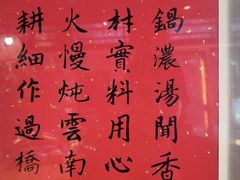 鍋濃湯聞香
材實料用心
火慢炖雲南
耕細作過橋